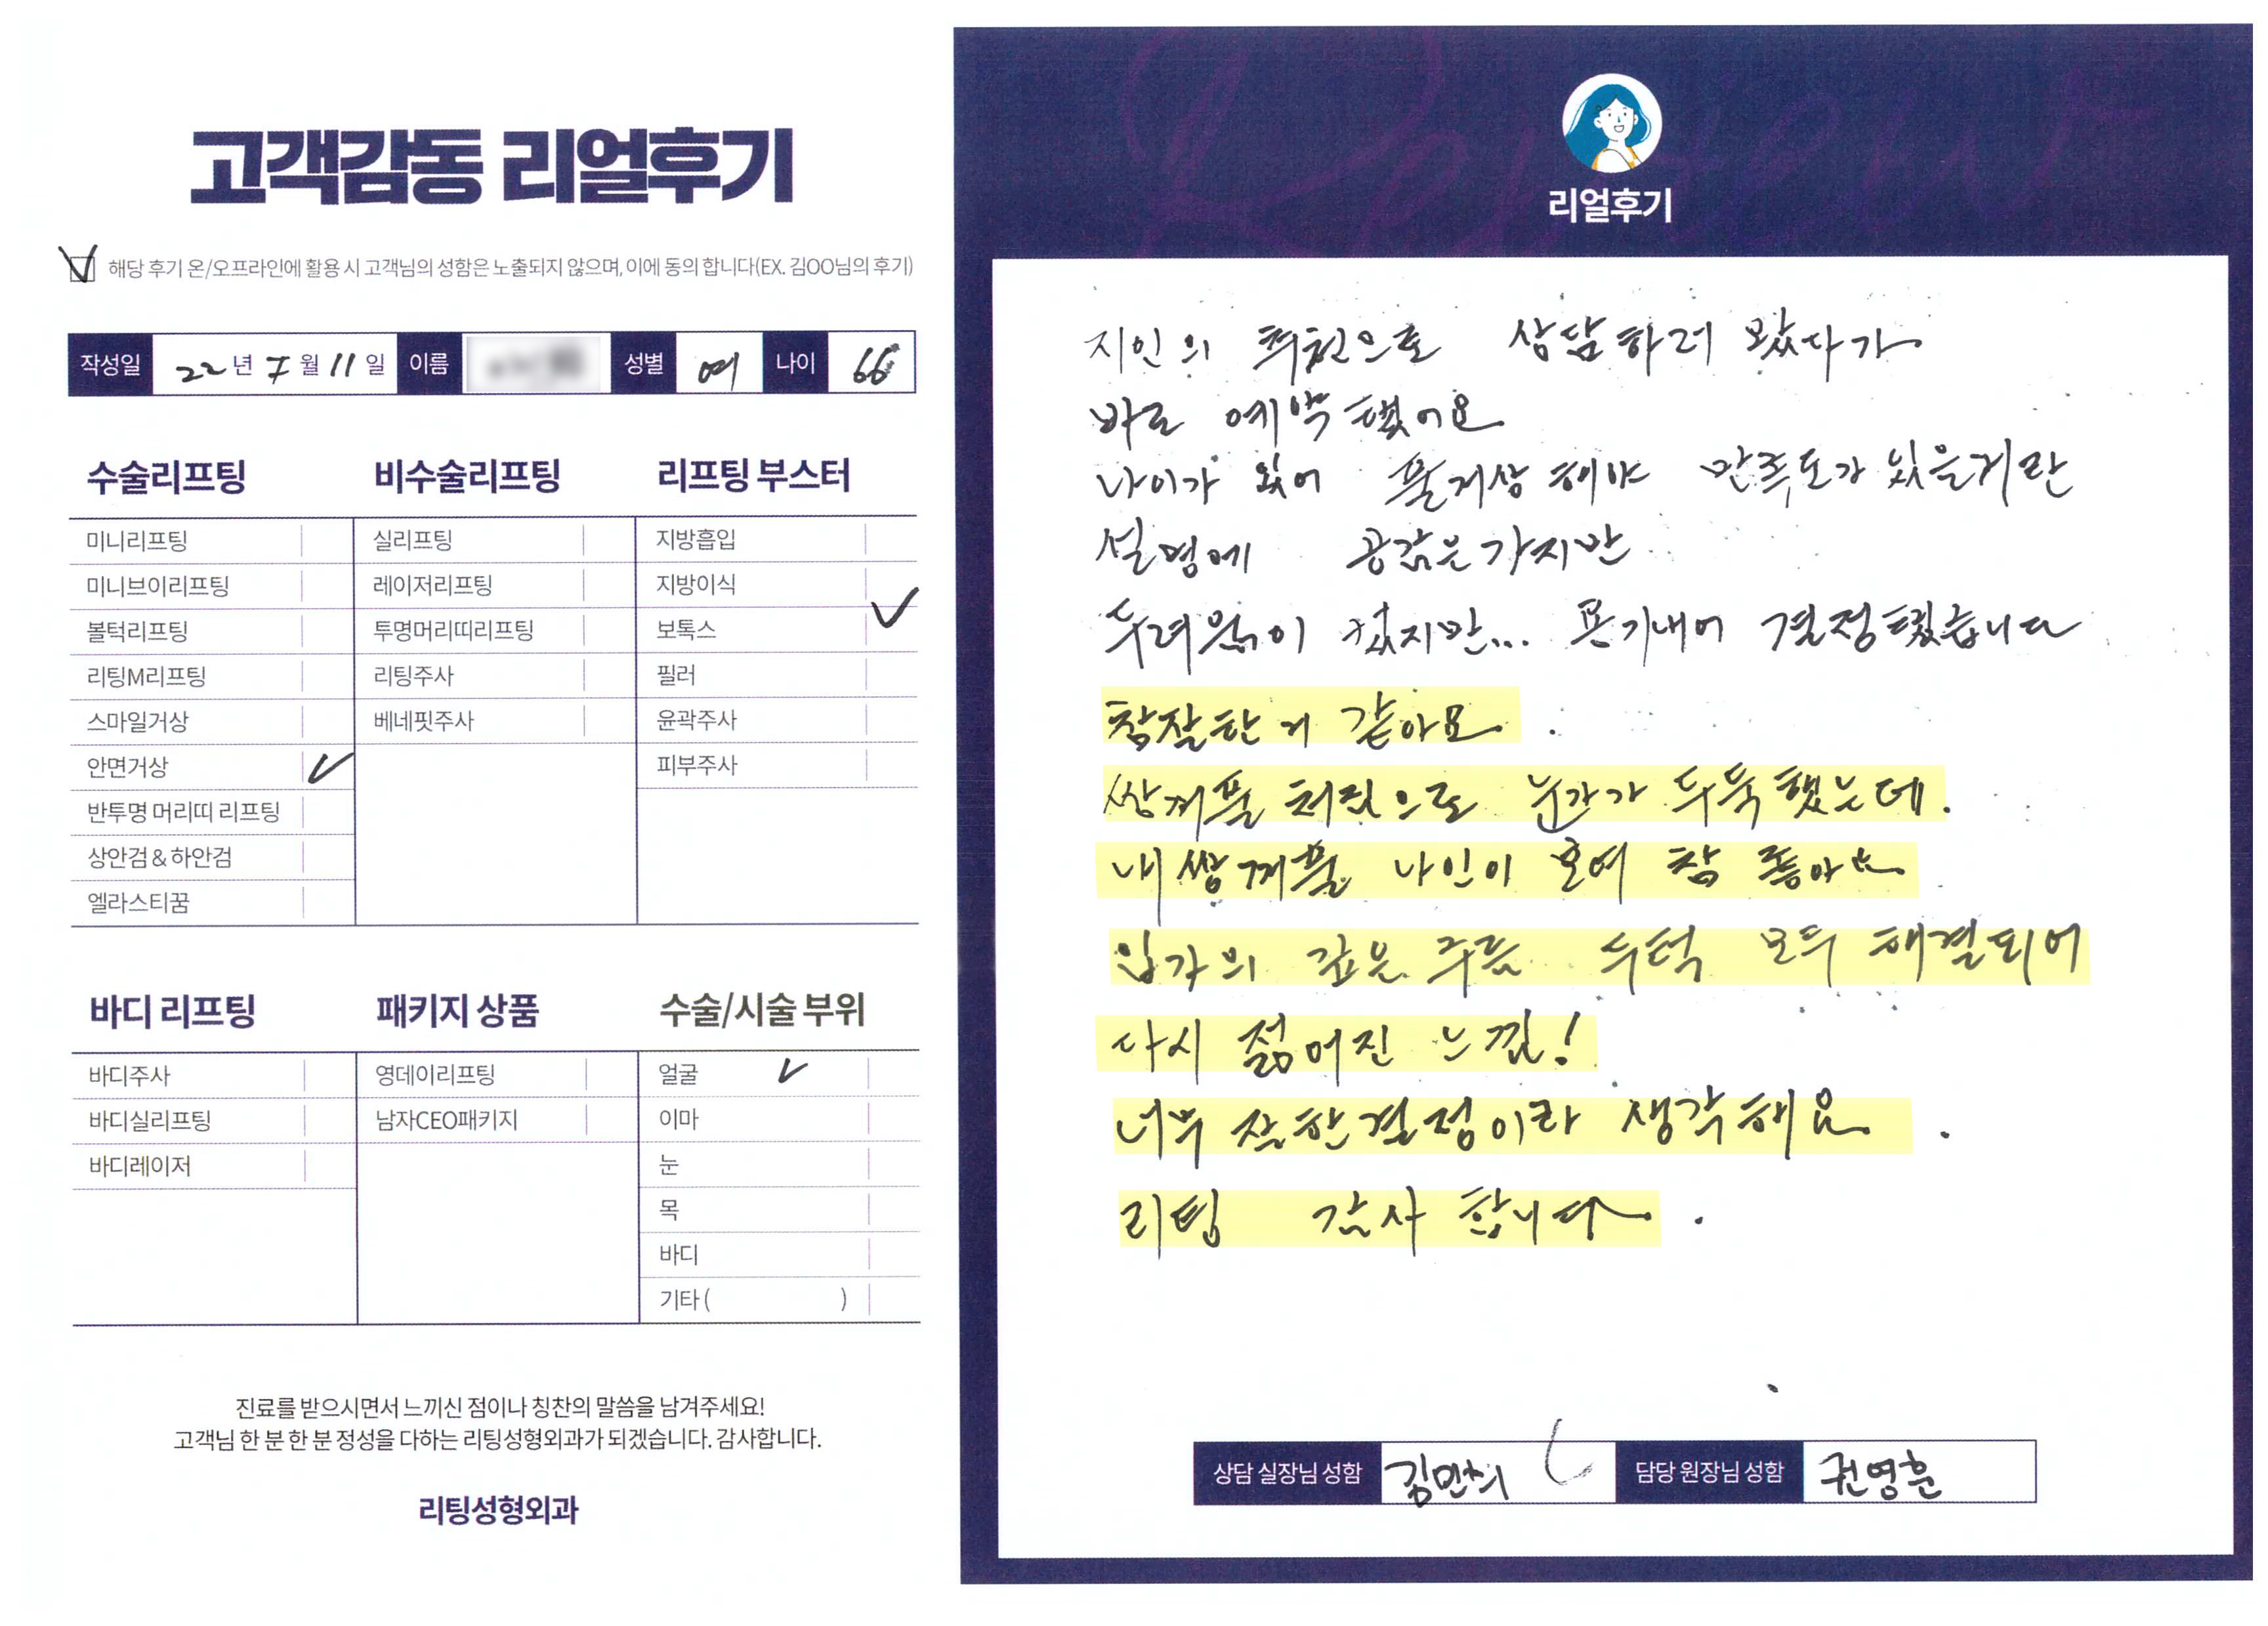 고객감동 리얼후기
해당 후기 온/오프라인에 활용 시 고객님의 성함은 노출되지 않으며, 이에 동의 합니다(EX. 김OO님의 후기)
작성일 22년 7월 11일 이름 성별 여 나이 66
수술리프팅
미니리프팅
미니브이리프팅
볼턱리프팅
리팅M리프팅
스마일거상
안면거상
반투명 머리띠 리프팅
상안검 & 하안검
엘라스티꿈
비수술리프팅
실리프팅
레이저리프팅
투명머리띠리프팅
리팅주사
베네핏주사
리프팅 부스터
지방흡입
지방이식
보톡스
필러
윤곽주사
피부주사
바디 리프팅
바디주사
바디실리프팅
바디레이저
패키지 상품
영데이리프팅
남자CEO패키지
수술/시술 부위
얼굴
이마
눈
목
바디
기타 ( )
진료를 받으시면서 느끼신 점이나 칭찬의 말씀을 남겨주세요!
고객님 한 분 한 분 정성을 다하는 리팅성형외과가 되겠습니다. 감사합니다.
리팅성형외과
리얼후기
지인의 추천으로 상담하러 왔다가
바로 예약했어요
나이가 있어 풀거상 해야 만족도가 있을거란
설명에 공감은 가지만
두려움이 컸지만... 용기내어 결정했습니다
참잘한거 같아요
쌍꺼풀 처짐으로 눈가가 두둑했는데.
내 쌍꺼풀 라인이 보여 참 좋아요
입가의 깊은 주름 두턱 모두 해결되어
다시 젊어진 느낌!
너무 잘한결정이라 생각해요.
리팅 감사 합니다.
상담 실장님 성함 김민희 담당 원장님 성함 권영훈